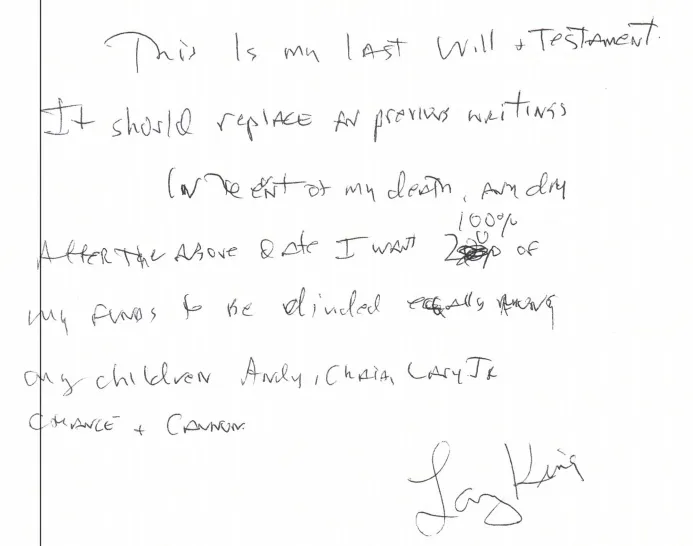 This Is my last Will + Testament.
It should replace all previous writings
In the event of my death, any day
After the Above date I want 100% of
my funds to be divided equally among
my children Andy, Chaia, Larry Jr
Chance + Cannon
Larry King